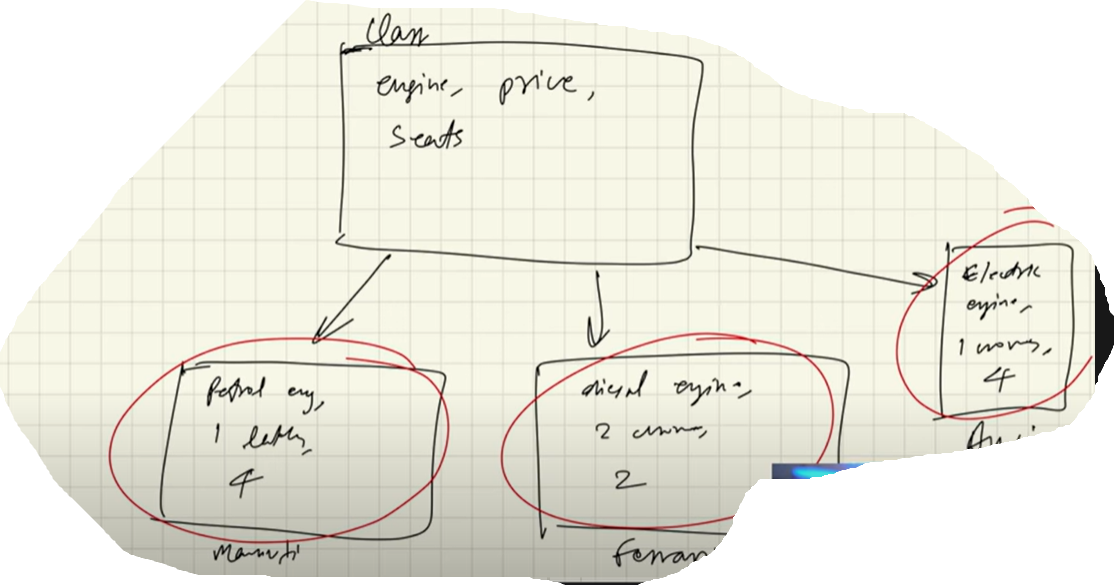 Class
engine, price,
Seats
Petrol eng,
1 lakh,
4
Maruti
diesel engine,
2 crores,
2
Ferrar
Electric
engine,
1 crores,
4